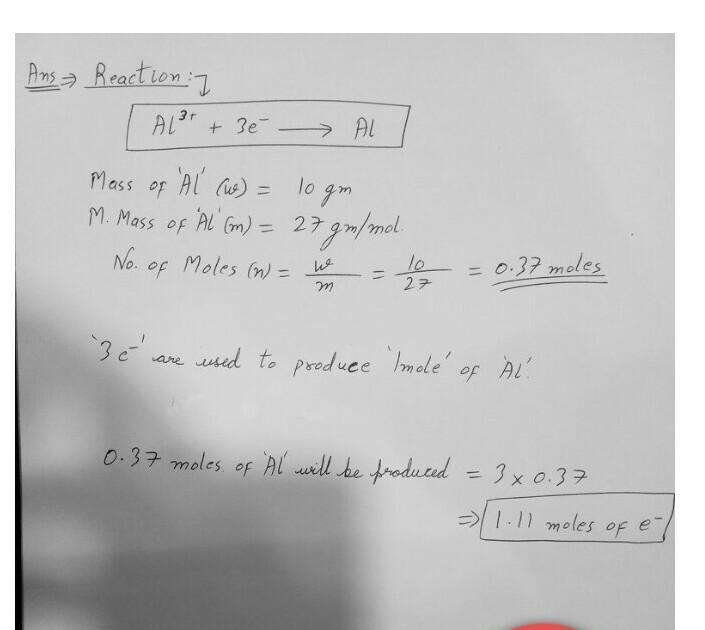 Ans ⇒ Reaction :↴
Al³⁺ + 3e⁻ ⟶ Al
Mass of 'Al' (w) = 10 gm
M. Mass of 'Al' (m) = 27 gm/mol.
No. of Moles (n) = w/m = 10/27 = 0.37 moles
'3 e⁻' are used to produce '1mole' of 'Al'.
0.37 moles of 'Al' will be produced = 3 x 0.37
⇒ 1.11 moles of e⁻